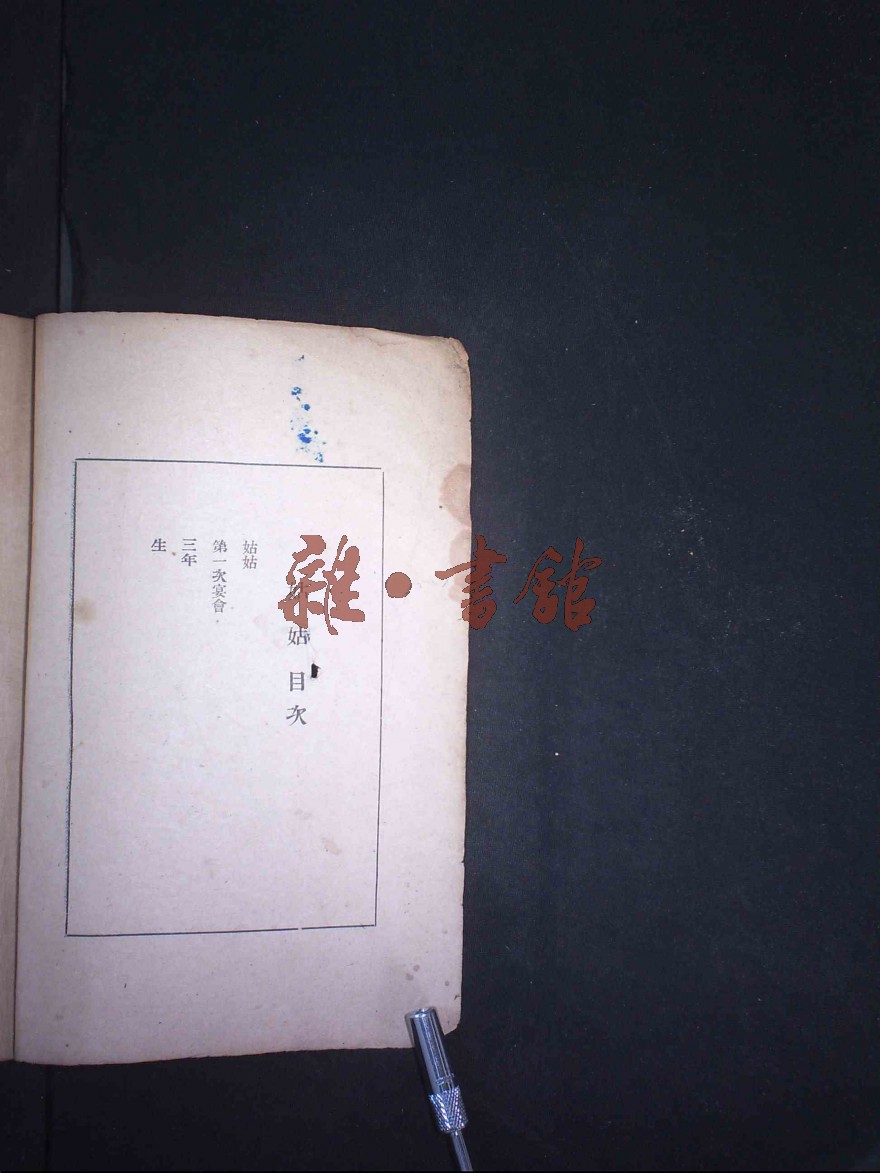 姑姑目次
姑姑
第一次宴會
三年
生
雜・書館